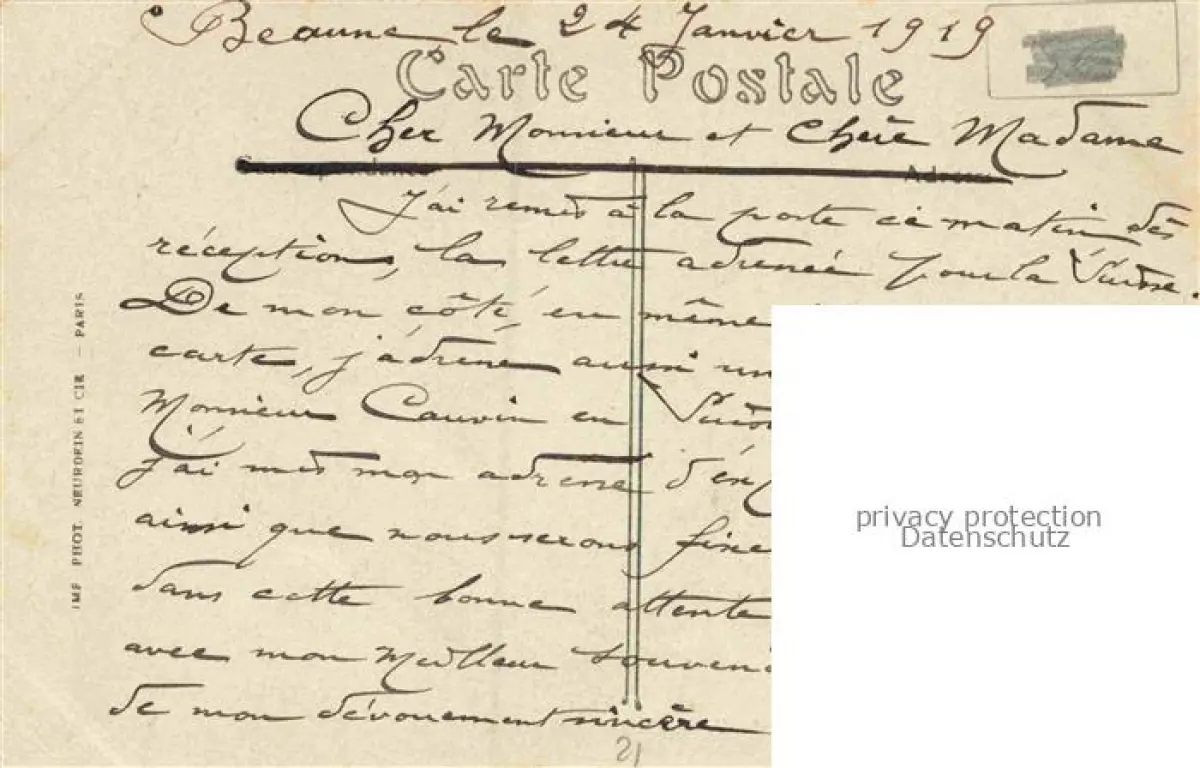 Beaune le 24 Janvier 1919
Carte Postale
Cher Monsieur et chère Madame
J'ai remis à la poste ce matin dès
réception, la lettre adressée pour la Suisse.
De mon côté, en même
carte, j'adresse aussi un
Monsieur Cauvin en Suisse
j'ai mis mon adresse d'en
ainsi que nous serons fixé
dans cette bonne attente
avec mon meilleur souveni
de mon dévouement sincère
21
IMP PHOT. NEURDEIN ET CIE — PARIS
privacy protection
Datenschutz